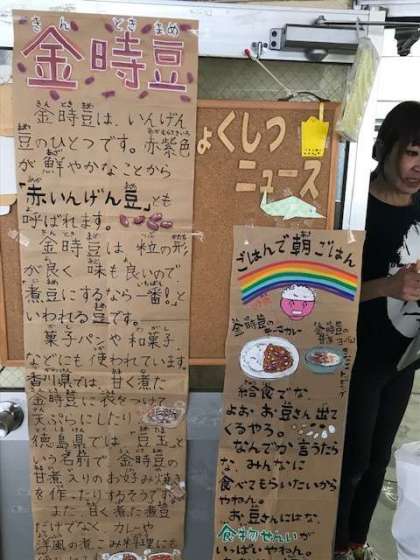 きんときまめ
金時豆
金時豆は、いんげん
豆のひとつです。赤紫色
が鮮やかなことから
「赤いんげん豆」とも
呼ばれます。
金時豆は粒の形
が良く味も良いので
「煮豆にするなら一番!」と
いわれる豆です。
菓子パンや和菓子
などにも使われています。
香川県では、甘く煮た
金時豆に衣をつけて
天ぷらにしたり
徳島県では「豆玉」と
いう名前で金時豆の
甘煮入りのお好み焼き
を作ったりするそうです。
また、甘く煮た煮豆
だけでなくカレーや
洋風の煮こみ料理にも
ょくしつ
ニュース
ごはんで朝ごはん
金時豆の
給食でな、
よぉ、お豆さん出て
くるやろ。
なんでか言うたら
な、みんなに
食べてもらいたいから
やねん。
お豆さんにはな、
食物せんいが
いっぱいやねん。